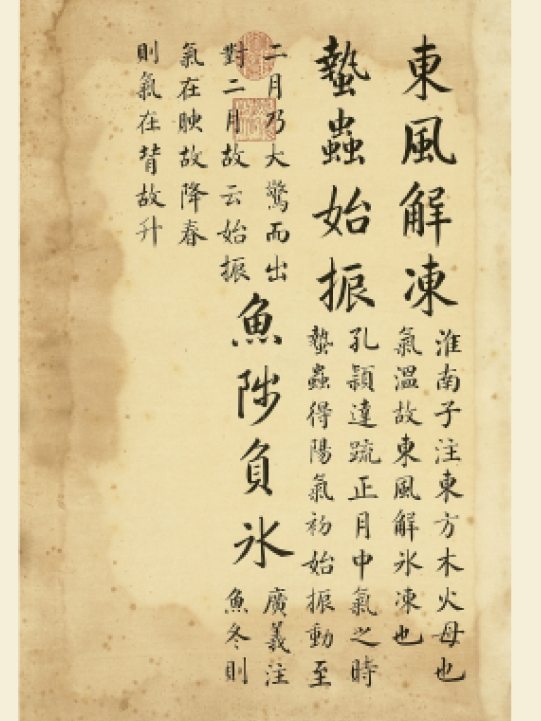 東風解凍
淮南子注東方木火母也
氣溫故東風解氷凍也
蟄蟲始振
孔穎達疏正月中氣之時
蟄蟲得陽氣初始振動至
二月乃大驚而出
對二月故云始振
魚陟負氷
廣義注
魚冬則
氣在腴故降春
則氣在背故升